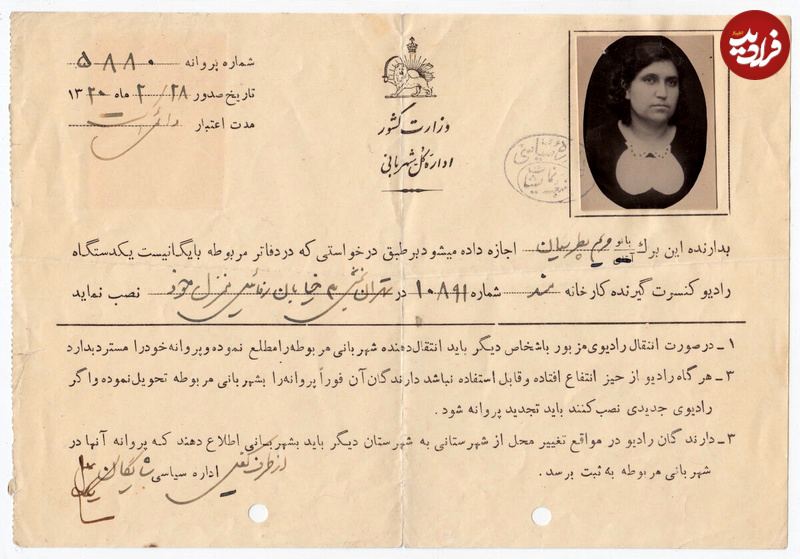 فرادید
اخبار
شماره پروانه ۵۸۸۰
تاریخ صدور ۲۸/ ۲ ماه ۱۳۲۰
مدت اعتبار
وزارت کشور
اداره کل شهربانی
بدارنده این برك بانو آقای مریم پطرسیان اجازه داده میشود برطبق درخواستی که در دفاتر مربوطه بایگانیست یکدستگاه
رادیو کنسرت گیرنده کارخانه شماره ۱۰۸۹۱ در تهران بخش ۳ خیابان منزل خود نصب نماید
۱ ـ در صورت انتقال رادیوی مزبور باشخاص دیگر باید انتقال دهنده شهربانی مربوطه را مطلع نموده و پروانه خود را مسترد بدارد
۳ ـ هر گاه رادیو از حیز انتفاع افتاده و قابل استفاده نباشد دارندگان آن فوراً پروانه را بشهربانی مربوطه تحویل نموده و اگر
رادیوی جدیدی نصب کنند باید تجدید پروانه شود .
۳ ـ دارند گان رادیو در مواقع تغییر محل از شهرستانی به شهرستان دیگر باید بشهربانی اطلاع دهند که پروانه آنها در
شهربانی مربوطه به ثبت برسد .
از طرف کفیل اداره سیاسی شایگان